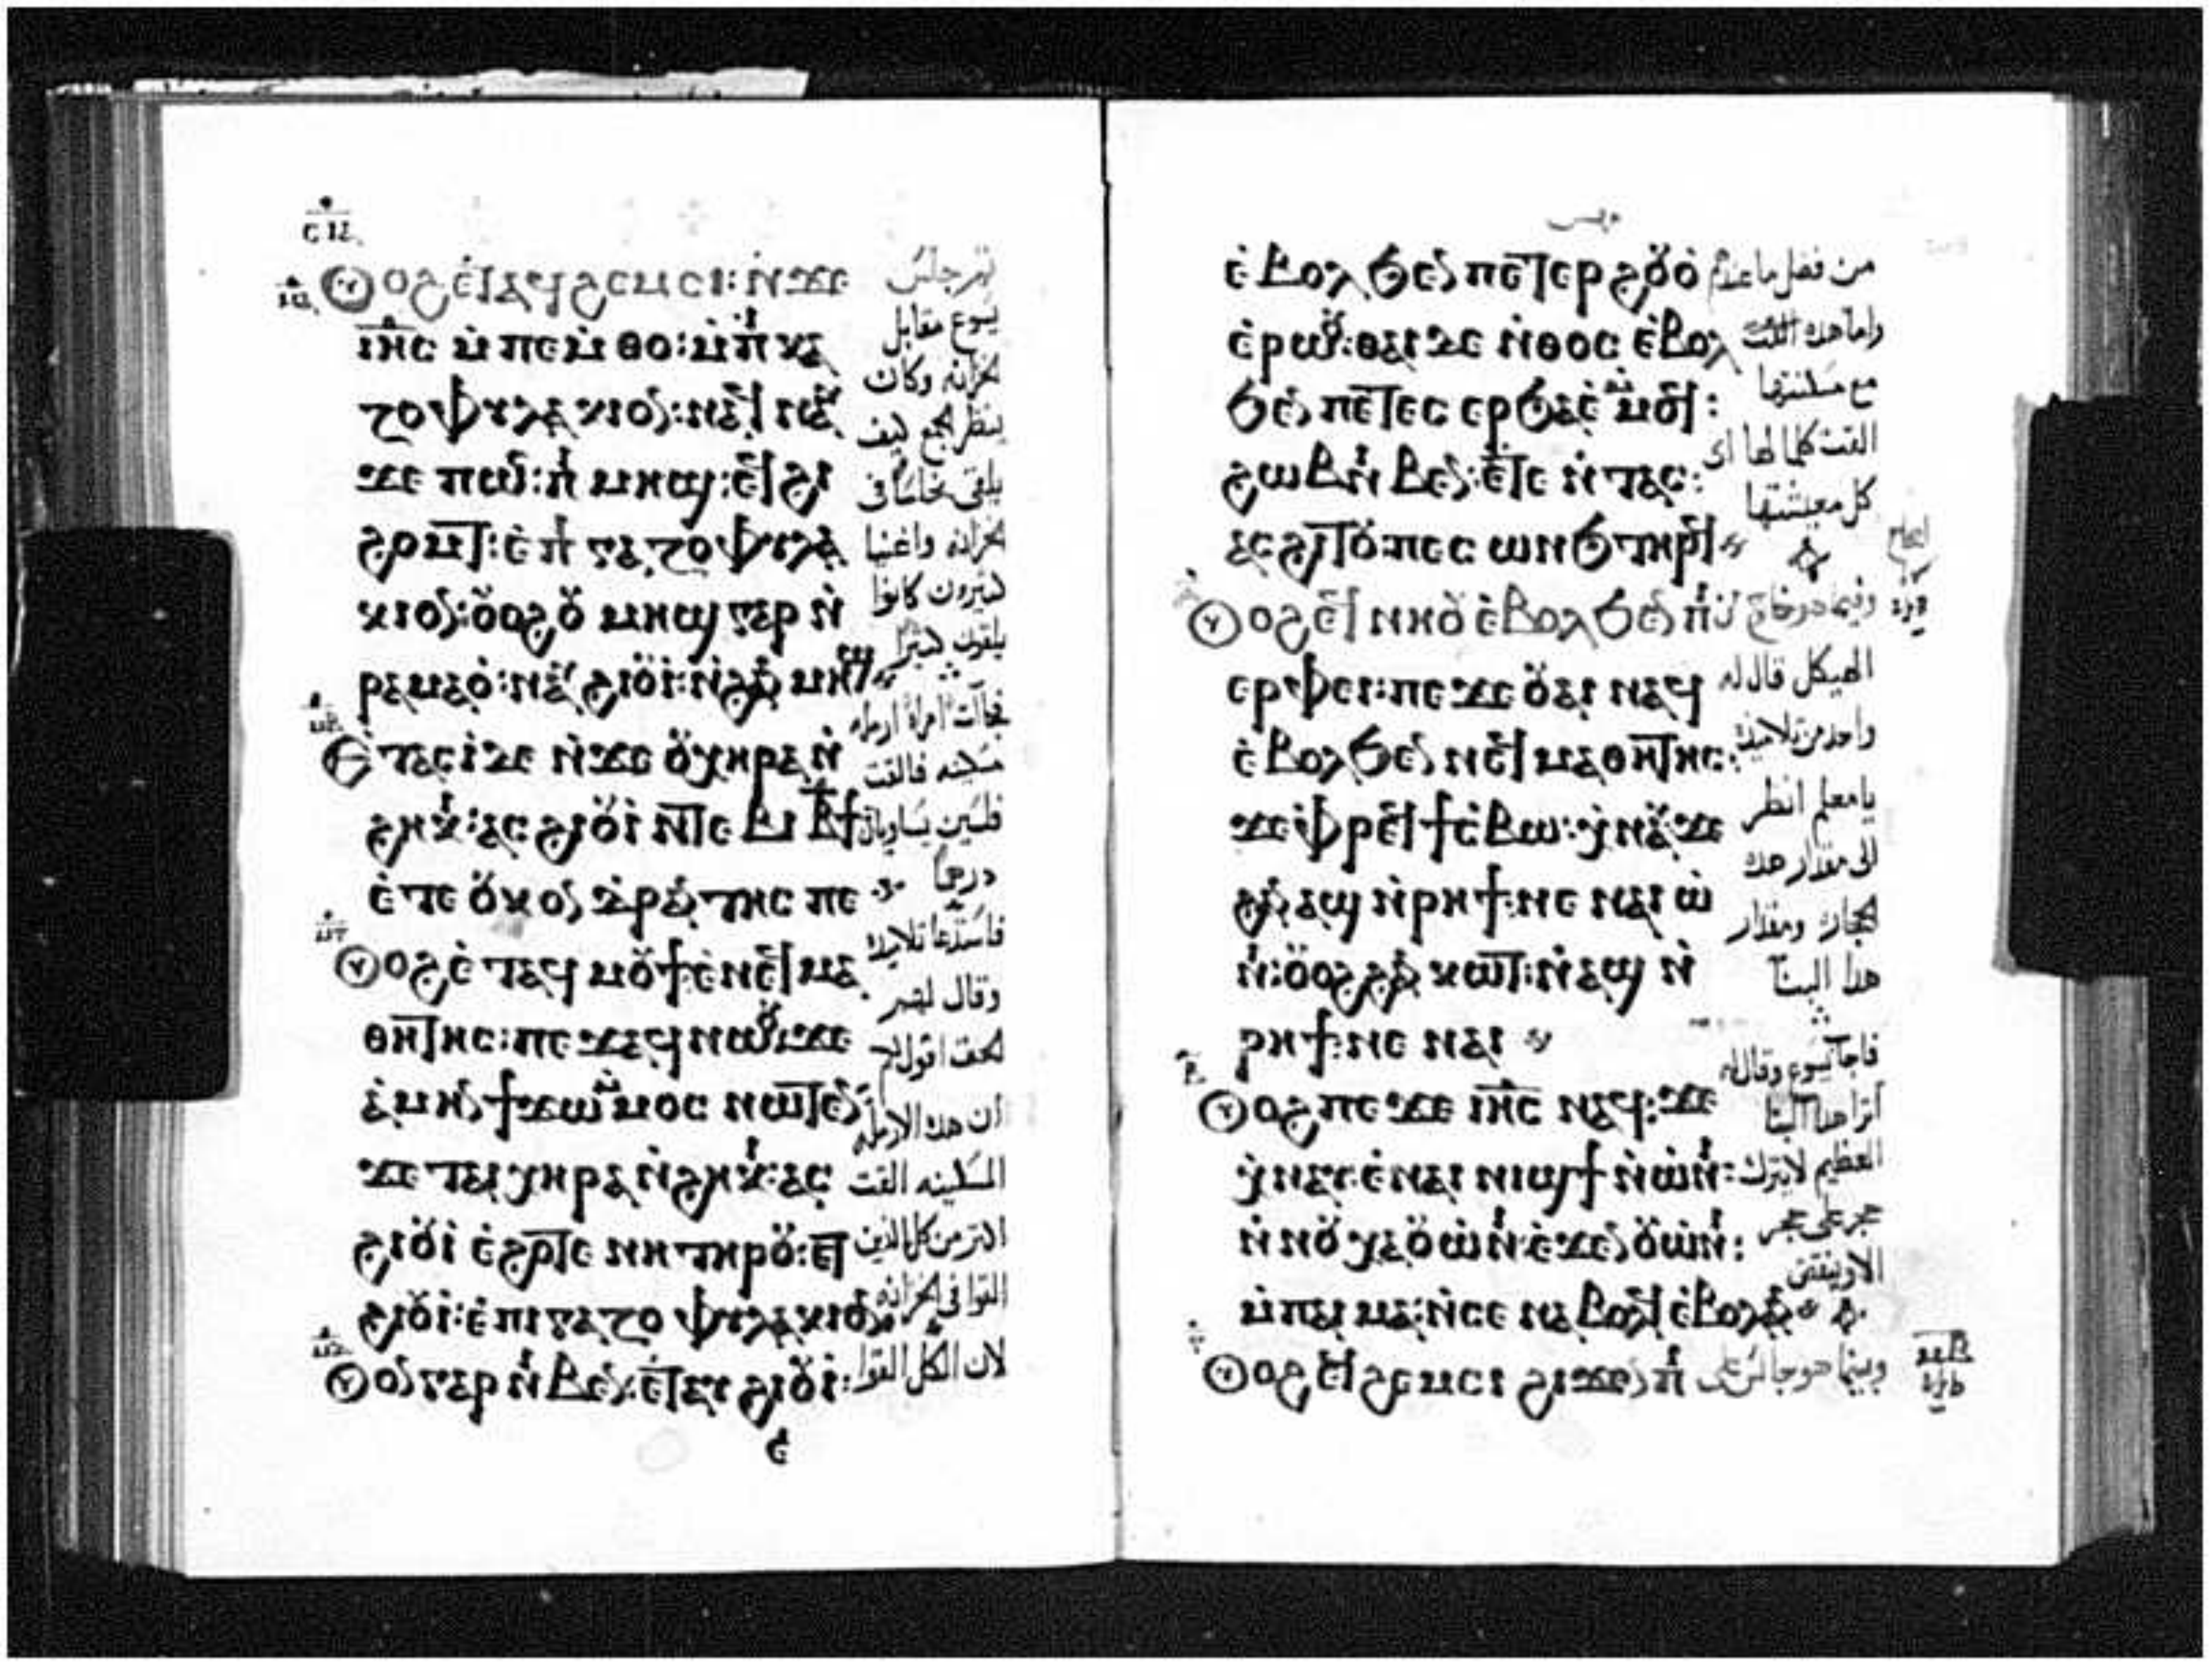 ⲟⲩⲟϩ ⲉⲧⲁϥϩⲉⲙⲥⲓ: ⲛ̇ϫⲉ
ⲓⲏⲥ ⲙ̇ⲡⲉⲙ̇ⲑⲟ: ⲙ̇ⲡⲓⲅⲁ
ⲍⲟⲫⲩⲗⲁⲕⲓⲟⲛ: ⲛⲁϥⲛⲁⲩ
ϫⲉ ⲡⲱⲥ: ⲡⲓⲙⲏϣ: ⲉⲧϩⲓ
ϩⲟⲙⲧ: ⲉ̇ⲡⲓⲅⲁⲍⲟⲫⲩⲗⲁ
ⲕⲓⲟⲛ: ⲟⲩⲟϩ ⲟⲩⲙⲏϣ ⲅⲁⲣ ⲛ̇
ⲣⲁⲙⲁⲟ̇: ⲛⲁⲩϩⲓⲟⲩⲓ̇: ⲛ̇ϩⲁⲛⲙⲏϣ
ⲉ̇ⲧⲁⲥⲓ̇ ⲇⲉ ⲛ̇ϫⲉ ⲟⲩⲭⲏⲣⲁ ⲛ̇
ϩⲏⲕⲓ: ⲁⲥϩⲓⲟⲩⲓ̇ ⲛ̇ⲧⲉⲃⲓ ⲃ̅ϯ
ⲉ̇ⲧⲉ ⲟⲩⲕⲟⲛⲇⲣⲁⲛⲧⲏⲥ ⲡⲉ
ⲟⲩⲟϩ ⲉ̇ⲧⲁϥⲙⲟⲩϯ ⲉ̇ⲛⲉϥⲙⲁ
ⲑⲏⲧⲏⲥ: ⲡⲉϫⲁϥ ⲛⲱⲟⲩ: ϫⲉ
ⲁ̇ⲙⲏⲛ ϯϫⲱ ⲙ̇ⲙⲟⲥ ⲛⲱⲧⲉⲛ
ϫⲉ ⲧⲁⲓⲭⲏⲣⲁ ⲛ̇ϩⲏⲕⲓ: ⲁⲥ
ϩⲓⲟⲩⲓ̇ ⲉ̇ϩⲟⲧⲉ ⲛⲏ ⲧⲏⲣⲟⲩ: ⲉⲧ
ϩⲓⲟⲩⲓ̇: ⲉ̇ⲡⲓⲅⲁⲍⲟⲫⲩⲗⲁⲕⲓⲟⲛ
ⲟⲩⲟⲛ ⲅⲁⲣ ⲛⲓⲃⲉⲛ: ⲉ̇ⲧⲁⲩϩⲓⲟⲩⲓ̇:
ⲉ̇
ثم جلس
يسوع مقابل
الخزانه وكان
ينظر الجمع كيف
يلقى نحاسًا فى
الخزانه واغنيا
كثيرون كانوا
يلقون كثيرًا
فجآت امراة ارمله
مسكينه فالقت
فلسين يساويان
درهمًا
فاستدعا تلاميذه
وقال لهم
الحق اقول لكم
ان هذه الارمله
المسكينه القت
اكثر من كل الذين
القوا فى الخزانه
لان الكل القوا
ⲉ̇ⲃⲟⲗ ϧⲉⲛ ⲡⲉⲧⲉⲣϩⲟⲩⲟ̇
ⲉ̇ⲣⲱⲟⲩ: ⲑⲁⲓ ⲇⲉ ⲛ̇ⲑⲟⲥ ⲉ̇ⲃⲟⲗ
ϧⲉⲛ ⲡⲉⲧⲉⲥⲉⲣϧⲁⲉ̇ ⲙ̇ⲙⲟϥ:
ϩⲱⲃ ⲛⲓⲃⲉⲛ: ⲉ̇ⲧⲉ ⲛ̇ⲧⲁⲥ:
ⲁⲥϩⲓⲧⲟⲩ: ⲡⲉⲥⲱⲛϧ ⲧⲏⲣϥ
ⲟⲩⲟϩ ⲉϥⲛⲏⲟⲩ ⲉ̇ⲃⲟⲗ ϧⲉⲛ ⲡⲓ
ⲉⲣⲫⲉⲓ: ⲡⲉϫⲉ ⲟⲩⲁⲓ ⲛⲁϥ
ⲉ̇ⲃⲟⲗ ϧⲉⲛ ⲛⲉϥⲙⲁⲑⲏⲧⲏⲥ:
ϫⲉ ⲫⲣⲉϥϯⲥⲃⲱ: ⲭ̇ⲛⲁⲩ: ϫⲉ
ϩⲁⲛⲁϣ ⲛ̇ⲣⲏϯ: ⲛⲉ ⲛⲁⲓ ⲱ̇
ⲛⲓ: ⲟⲩⲟϩ ϩⲁⲛⲕⲱⲧ: ⲛ̇ⲁϣ ⲛ̇
ⲣⲏϯ: ⲛⲉ ⲛⲁⲓ
ⲟⲩⲟϩ ⲡⲉϫⲉ ⲓⲏⲥ ⲛⲁϥ: ϫⲉ
ⲭ̇ⲛⲁⲩ: ⲉ̇ⲛⲁⲓ ⲛⲓϣϯ ⲛ̇ⲱⲛⲓ:
ⲛ̇ⲛⲟⲩⲭⲁ ⲟⲩⲱ̇ⲛⲓ ⲉ̇ϫⲉⲛ ⲟⲩⲱ̇ⲛⲓ:
ⲙ̇ⲡⲁⲓⲙⲁ: ⲛ̇ⲥⲉⲛⲁⲃⲟⲗϥ ⲉ̇ⲃⲟⲗ ⲁⲛ
ⲟⲩⲟϩ ⲉϥϩⲉⲙⲥⲓ ϩⲓϫⲉⲛ ⲡⲓ
من فضل ما عندهم
واما هذه القت
مع مسكنتها
القت كلما لها اى
كل معيشتها
وفيما هو خارج من
الهيكل قال له
واحد من تلاميذه
يا معلم انظر
الى مقدار هذه
الحجاره ومقدار
هذا البنآ
فاجآب يسوع وقال له
اترا هذا البنآ
العظيم لا يترك
حجر على حجر
الا وينقض
وبينما هو جالس على